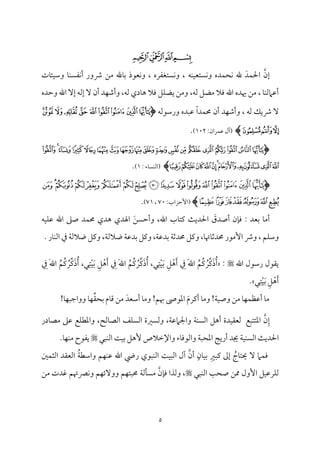 بِسْمِ اللَّهِ الرَّحْمَٰنِ الرَّحِيمِ
إنَّ الحمدَ لله نحمده ونستعينه ، ونستغفره ، ونعوذ بالله من شرور أنفسنا وسيئات
أعمالنا ، من يهده الله فلا مضل له، ومن يضلل فلا هادي له، وأشهد أن لا إله إلا الله وحده
لا شريك له ، وأشهد أن محمداً عبده ورسوله ﴿ يَا أَيُّهَا الَّذِينَ آمَنُوا اتَّقُوا اللَّهَ حَقَّ تُقَاتِهِ وَلَا تَمُوتُنَّ
إِلَّا وَأَنتُم مُّسْلِمُونَ ﴾ (آل عمران: ١٠٢).
﴿ يَا أَيُّهَا النَّاسُ اتَّقُوا رَبَّكُمُ الَّذِي خَلَقَكُم مِّن نَّفْسٍ وَاحِدَةٍ وَخَلَقَ مِنْهَا زَوْجَهَا وَبَثَّ مِنْهُمَا رِجَالًا كَثِيرًا وَنِسَاءً وَاتَّقُوا
اللَّهَ الَّذِي تَسَاءَلُونَ بِهِ وَالْأَرْحَامَ إِنَّ اللَّهَ كَانَ عَلَيْكُمْ رَقِيبًا ﴾ (النساء: ١).
﴿ يَا أَيُّهَا الَّذِينَ آمَنُوا اتَّقُوا اللَّهَ وَقُولُوا قَوْلًا سَدِيدًا ۝ يُصْلِحْ لَكُمْ أَعْمَالَكُمْ وَيَغْفِرْ لَكُمْ ذُنُوبَكُمْ وَمَن
يُطِعِ اللَّهَ وَرَسُولَهُ فَقَدْ فَازَ فَوْزًا عَظِيمًا ﴾ (الأحزاب: ٧٠، ٧١).
أما بعد : فإن أصدقَ الحديث كتاب الله، وأحسنَ الهدي هدي محمد صلى الله عليه
وسلم ، وشر الأمور محدثاتها، وكل محدثة بدعة، وكل بدعة ضلالة، وكل ضلالة في النار .
يقول رسول الله ﷺ : «أُذَكِّرُكُمُ اللهَ فِي أَهْلِ بَيْتِي، أُذَكِّرُكُمُ اللهَ فِي أَهْلِ بَيْتِي، أُذَكِّرُكُمُ اللهَ فِي
أَهْلِ بَيْتِي».
ما أعظمها من وصية! وما أكرمَ الموصى بهم! وما أسعدَ من قام بحقِّها وواجبها!
إنَّ المتتبع لعقيدة أهل السنة والجماعة، ولسيرة السلف الصالح، والمطلع على مصادر
الحديث السنية يجد أريج المحبة والوفاء والإخلاص لأهل بيت النبي ﷺ يفوح منها.
فمما لا يحتاجُ إلى كبيرِ بيانٍ أنَّ آل البيت النبوي رضي الله عنهم واسطةُ العقد الثمين
للرعيل الأول ممن صحب النبي ﷺ، ولذا فإنَّ مسألة محبتهم وولائهم ونصرتهم غدت من
٥